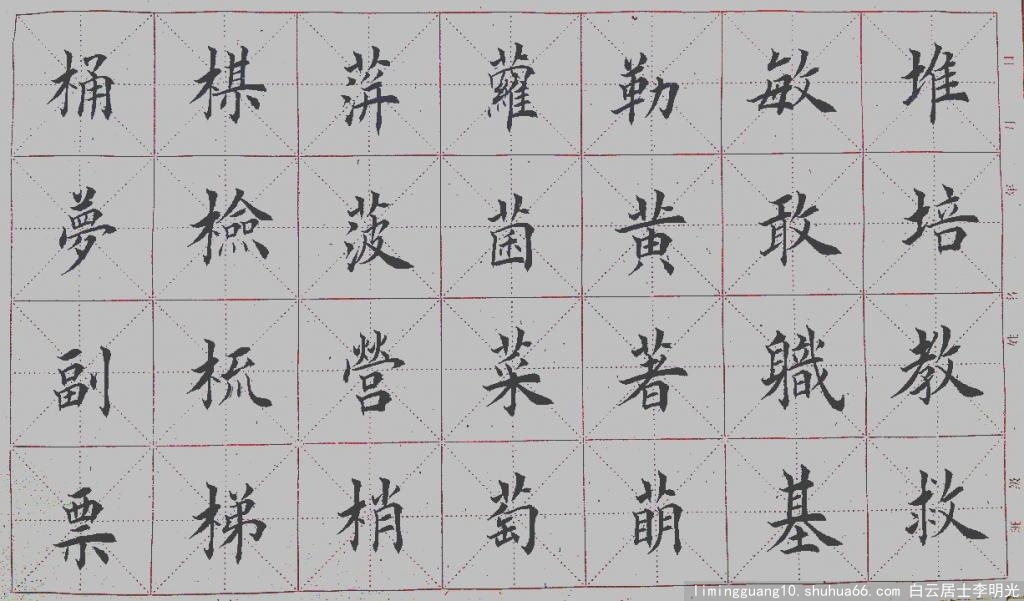 堆培教救
敏敢軄基
勒黄著萌
蘿菌菜萄
萍菠營梢
棋檢梳梯
桶夢副票
班 级 姓名 年 月 日
limingguang10.shuhua66.com 白云居士李明光